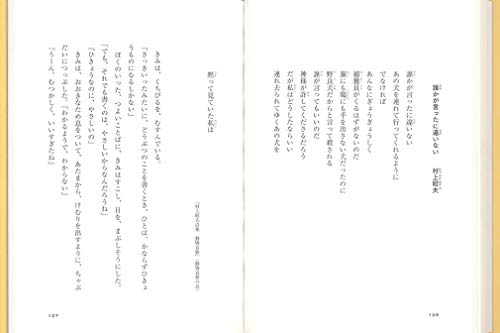 誰かが言ったに違いない　村上昭夫
誰かが言ったに違いない
あの犬を連れて行ってくれるように
でなければ
あんなにぎょうぎょうしく
捕獲員がくるはずがないのだ
猫にも鶏にも手を出さない犬だったのに
野良犬だからと言って殺される
誰が言ってもいいのだ
神様が許してくださるだろう
だが私はどうしたらいい
連れ去られてゆくあの犬を
126
黙って見ていた私は
きみは、くちびるを、むすんでいる。
「さっきいったみたいに、どうぶつのことを書くとき、ひとは、かならずひきょう
ものになるしかない」
ぼくのいった、つよいことばに、きみはすこし、目を、まぶしそうにした。
「でも、それでも書くのは、やさしいからなんだろうね」
「ひきょうなのに、やさしいの」
きみは、おおきなため息をついて、あたまから、けむりを出すように、ちゃぶ
だいにつっぷした。「わかるようで、わからない」
「うーん。むつかしくて、いいすぎたね」
127